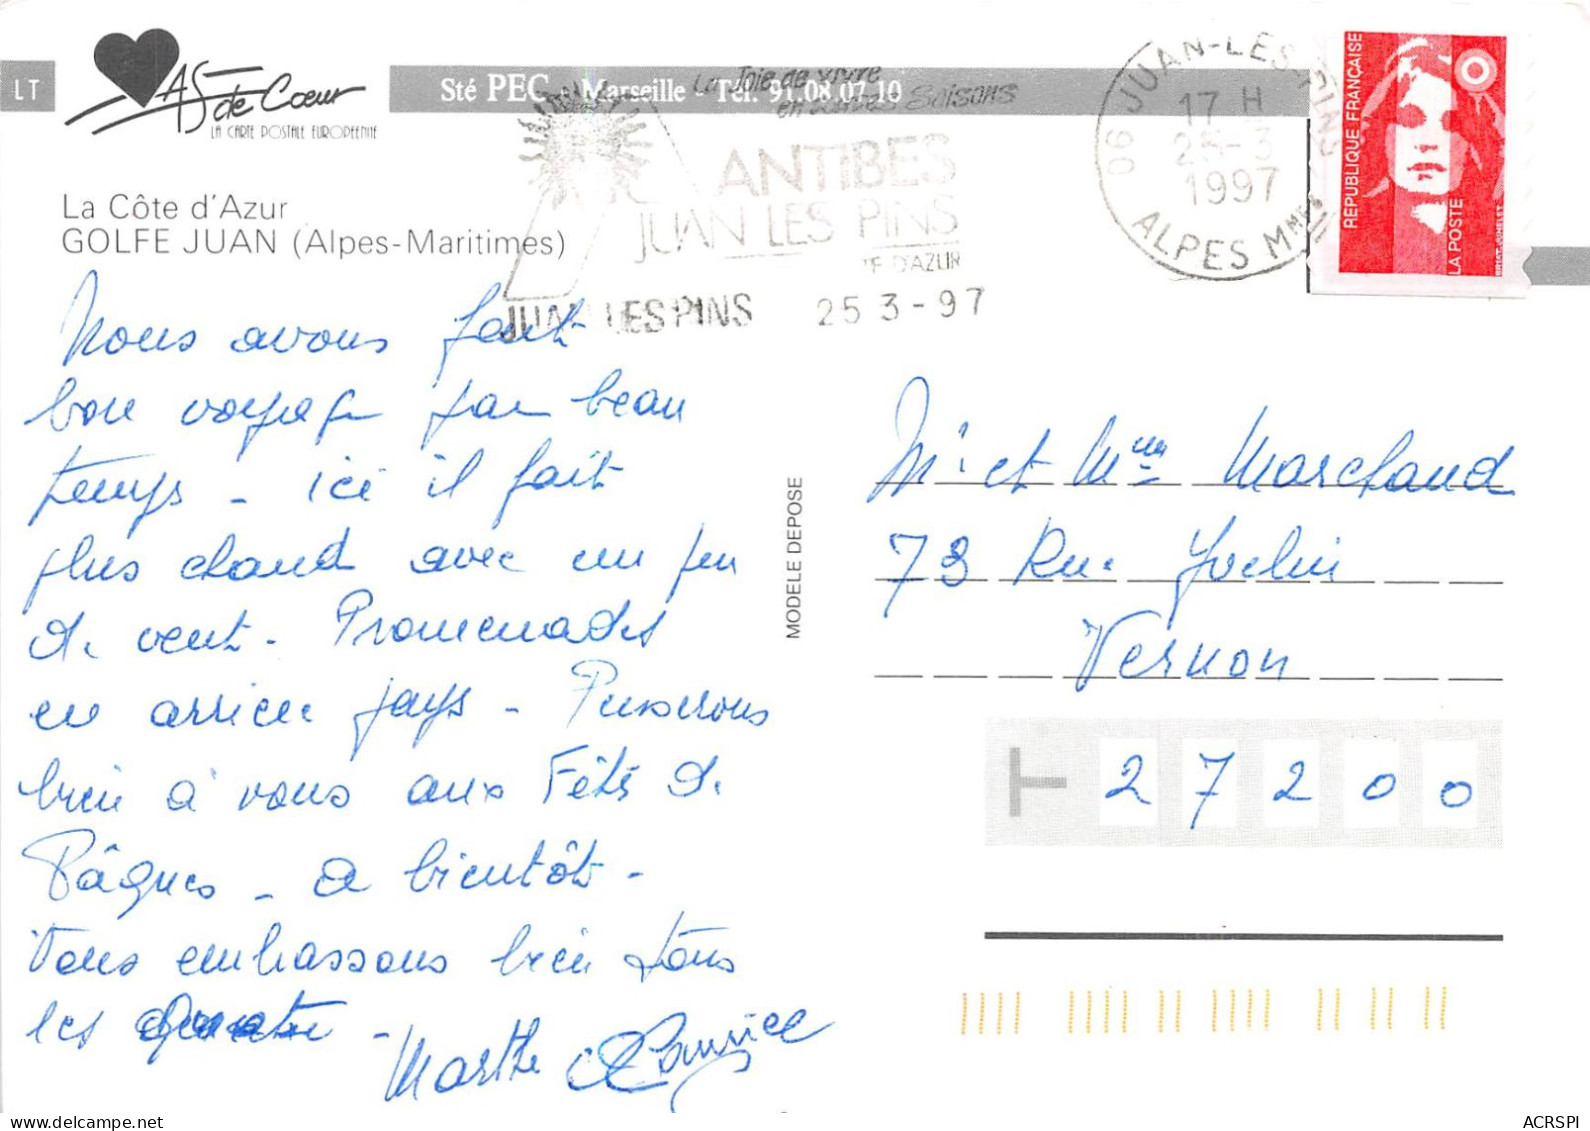 LT
AS de Cœur
LA CARTE POSTALE EUROPEENNE
Sté PEC - Marseille - Tél. 91.08.07.10
La Joie de vivre
en Saisons
ANTIBES
JUAN LES PINS
D'AZUR
JUAN LES PINS 25 3 - 97
06 JUAN-LES-PINS
17 H
25-3
1997
ALPES MMES
REPUBLIQUE FRANÇAISE
LA POSTE
La Côte d'Azur
GOLFE JUAN (Alpes-Maritimes)
Nous avons fait
bon voyage par beau
temps - ici il fait
plus chaud avec un peu
de vent - Promenades
en arrière pays - Penserons
bien à vous aux Fêtes de
Pâques - a bientôt -
Vous embrassons bien tous
les quatre -
Marthe Maurice
MODELE DEPOSE
Mr et Mme Marchand
73 Rue Yvelin
Vernon
27200
ACRSPI